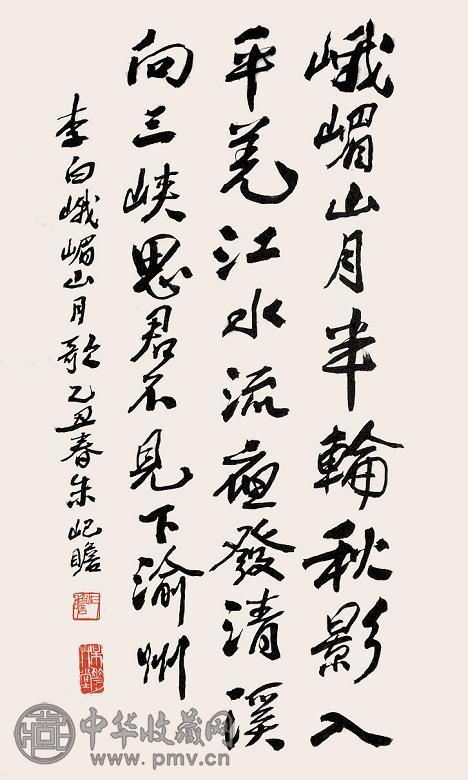 峨嵋山月半輪秋影入
平羌江水流夜發清溪
向三峽思君不見下渝州
李白峨嵋山月歌乙丑春朱屺瞻
中华收藏网
www.pmv.cn